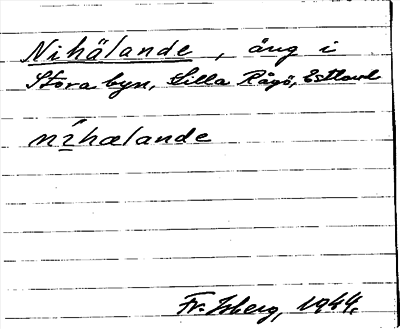 Nihälande, äng i
Stora byn, Lilla Rågö, Estland
nīhælande
Fr. Isberg, 1944.